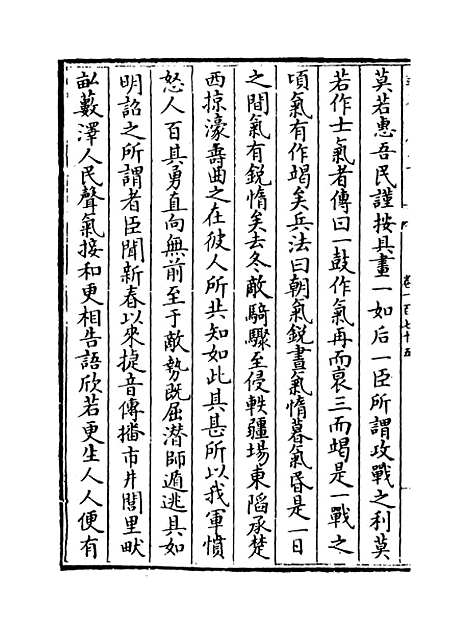 卷一百七十五
莫若惠吾民謹按具畫一如后一臣所謂攻戰之利莫
若作士氣者傳曰一鼓作氣再而衰三而竭是一戰之
頃氣有作竭矣兵法曰朝氣銳晝氣惰暮氣昏是一日
之間氣有銳惰矣去冬敵騎驟至侵軼疆場東陷承楚
西掠濠壽曲之在彼人所共知如此其甚所以我軍憤
怒人百其勇直向無前至于敵勢既屈潜師遁逃具如
明詔之所謂者臣聞新春以來捷音傳播市井閭里畎
畝藪澤人民聲氣接和更相告語欣若更生人人便有